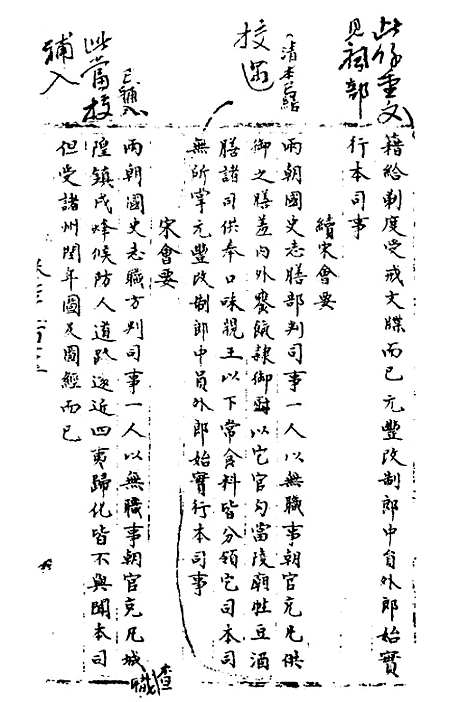 此條重文
見祠部
籍給剃度受戒文牒而已元豐改制郎中員外郎始實
行本司事
續宋會要
清本已結
校過
兩朝國史志膳部判司事一人以無職事朝官充凡供
御之膳羞内外饔餼隷御厨以它官勾當陵廟牲豆酒
膳諸司供奉口味親王以下常食料皆分領它司本司
無所掌元豐改制郎中員外郎始實行本司事
宋會要
已補入
此當校
補入
兩朝國史志職方判司事一人以無職事朝官充凡城
隍鎮戍烽候防人道路逺近四夷歸化皆不與聞本司
但受諸州閏年圖及圖經而已
查
職